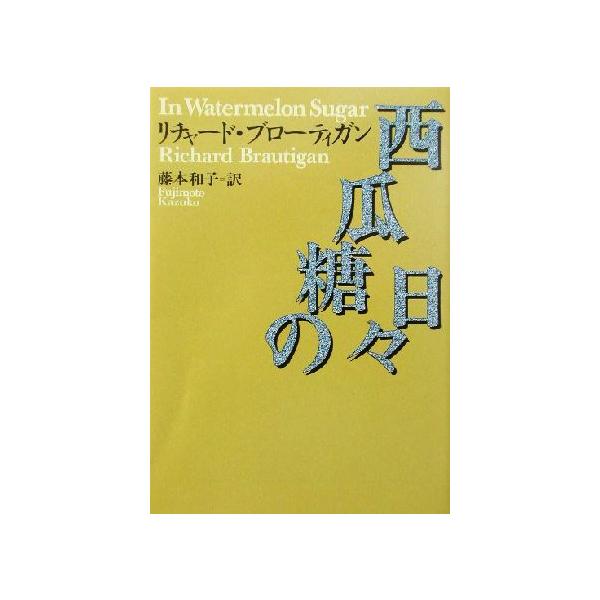 In Watermelon Sugar
リチャード・ブローティガン
Richard Brautigan
藤本和子=訳
Fujimoto
Kazuko
西瓜糖の
日々